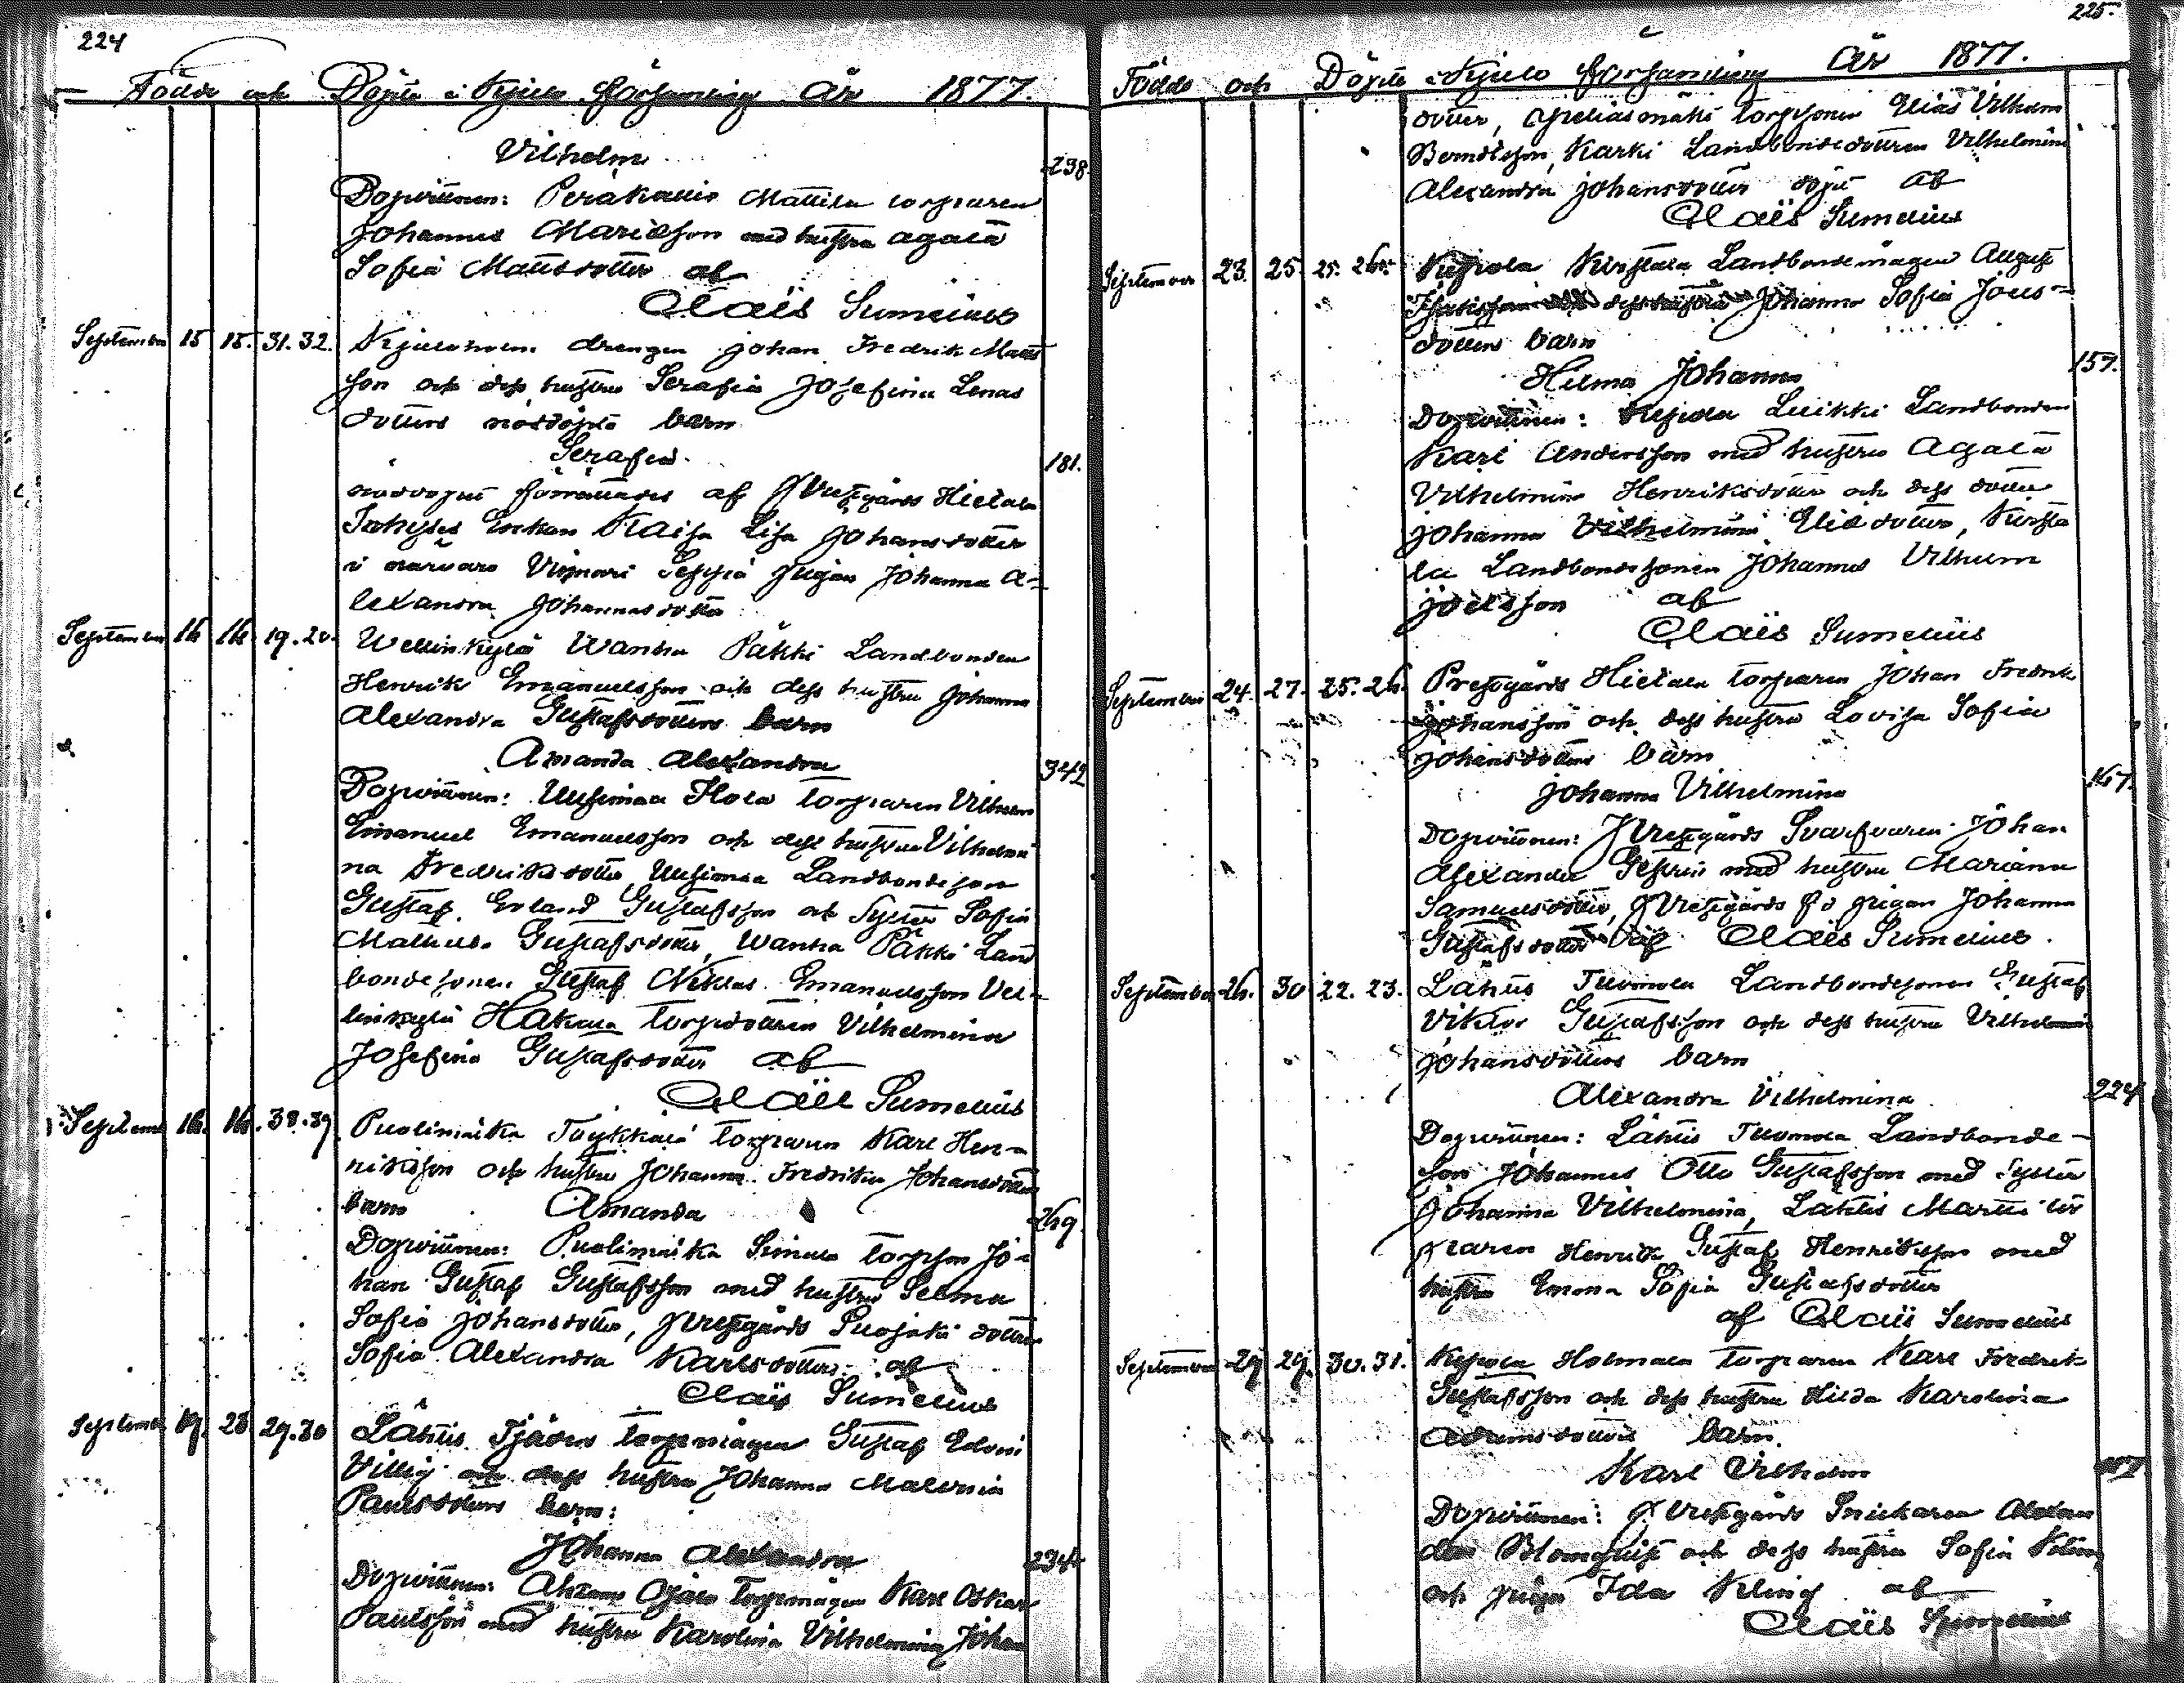 224
Födde och Döpte i Kjulo församling År 1877.
Vilhelm
238.
Dopvittnen: Peräkallio Mattila torparen
Johannes Mariæson med hustru Agata
Sofia Mattsdotter af
Claës Sumelius
September 15 18. 31. 32. Kjuloholm drengen Johan Fredrik Matts
son och dess hustru Serafia Josefina Lenas
dotters nöddöpta barn
Serafia
181.
nöddopet förrättades af Prestgårds Hietala
Enkan Kaisa Lisa Johansdotter
i närvaro Seppä pigan Johanna A-
lexandra Johannesdotter
September 16 16 19. 20. Wellinkylä Wanha Päkki Landbonden
Henrik Emanuelsson och dess hustru Johanna
Alexandra Gustafsdotters barn
Amanda Alexandra
342
Dopvittnen: Uusimaa torparen Vilhelm
Emanuel Emanuelsson och dess hustru Vilhelmi
na Fredriksdotter, Uusimaa Landbondeson
Gustaf Erland Gustafsson och Syster Sofia
Mathilda Gustafsdotter, Wanha Päkki Land
bondesonen Gustaf Niklas Emanuelsson Vel-
linkylä Hakala torpdottren Vilhelmina
Josefina Gustafsdotter af
Claës Sumelius
September 16. 16. 38. 39. Puolimatka Töykkälä torparen Karl Hen-
riksson och hustru Johanna Fredrika Johansdotters
barn Amanda
269.
Dopvittnen: Puolimatka Simula torpson Jo-
han Gustaf Gustafsson med hustru Selma
Sofia Johansdotter, Prestgårds Suojaki dottren
Sofia Alexandra Karlsdotter af
Claës Sumelius
September 19. 23 29. 30 Lähtis Tjäder torpmågen Gustaf Edvin
Villig och dess hustru Johanna Malvina
Paulsdotters barn:
Johanna Alexandra
234
Dopvittnen: Ojala torpmågen Karl Oskar
Paulsson med hustru Karolina Vilhelmina Johans
225.
Födde och Döpte i Kjulo församling År 1877.
dotter, torpsonen Elias Vilhelm
Berndtsson, Karhi Landbondedottren Vilhelmina
Alexandra Johansdotter döpt af
Claës Sumelius
September 23. 25 25. 26. Kepola Kirstala Landbondemågen August
Johanna Sofia Joels-
dotters barn
Hilma Johanna
157.
Dopvittnen: Kepola Luikki Landbonden
Karl Andersson med hustru Agata
Vilhelmina Henriksdotter och dess dotter
Johanna Vilhelmina Eliedotter, Kirsta
la Landbondesonen Johannes Vilhelm
Joelsson af
Claës Sumelius
September 24. 27. 25. 26. Prestgårds Hietala torparen Johan Fredrik
Johansson och dess hustru Lovisa Sofia
Johansdotters barn
Johanna Vilhelmina
167.
Dopvittnen: Prestgårds Svarfvaren Johan
Alexander med hustru Mariana
Samuelsdotter, Prestgårds pigan Johanna
Gustafsdotter af Claës Sumelius.
September 26. 30 22. 23. Lähtis Tuomola Landbondesonen Gustaf
Viktor Gustafsson och dess hustru Vilhelmina
Johansdotters barn
Alexandra Vilhelmina
224
Dopvittnen: Lähtis Tuomola Landbonde-
son Johannes Otto Gustafsson med Syster
Johanna Vilhelmina, Lähtis Martti tor
paren Henrik Gustaf Henriksson med
hustru Emma Sofia Gustafsdotter
af Claës Sumelius
September 29 29. 30. 31. Kepola Holmala torparen Karl Fredrik
Gustafsson och dess hustru Hilda Karolina
Adamsdotters barn.
Karl Vilhelm
Dopvittnen: Prestgårds Snickaren Alexan
der Blomqvist och dess hustru Sofia
och pigan Ida Kling af
Claës Sumelius